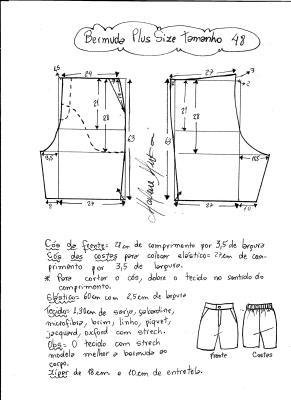 Bermuda Plus Size Tamanho 48
1,5
24
27
3
2
21
28
21
28
63
3,5
2
27
27
10
Cós da frente: 27cm de comprimento por 3,5 de largura
Cós das costas para colocar elástico: 27cm de com-
primento por 3,5 de largura.
* Para cortar o cós, dobre o tecido no sentido do
comprimento.
Elástico: 60cm com 2,5cm de largura
Tecido: 1,30cm de sarja, gabardine,
microfibra, brim, linho, piquet,
jacquard, oxford com strech.
Obs: O tecido com strech
modela melhor a bermuda ao
corpo.
Zíper de 18cm e 10cm de entretela.
Frente
Costas